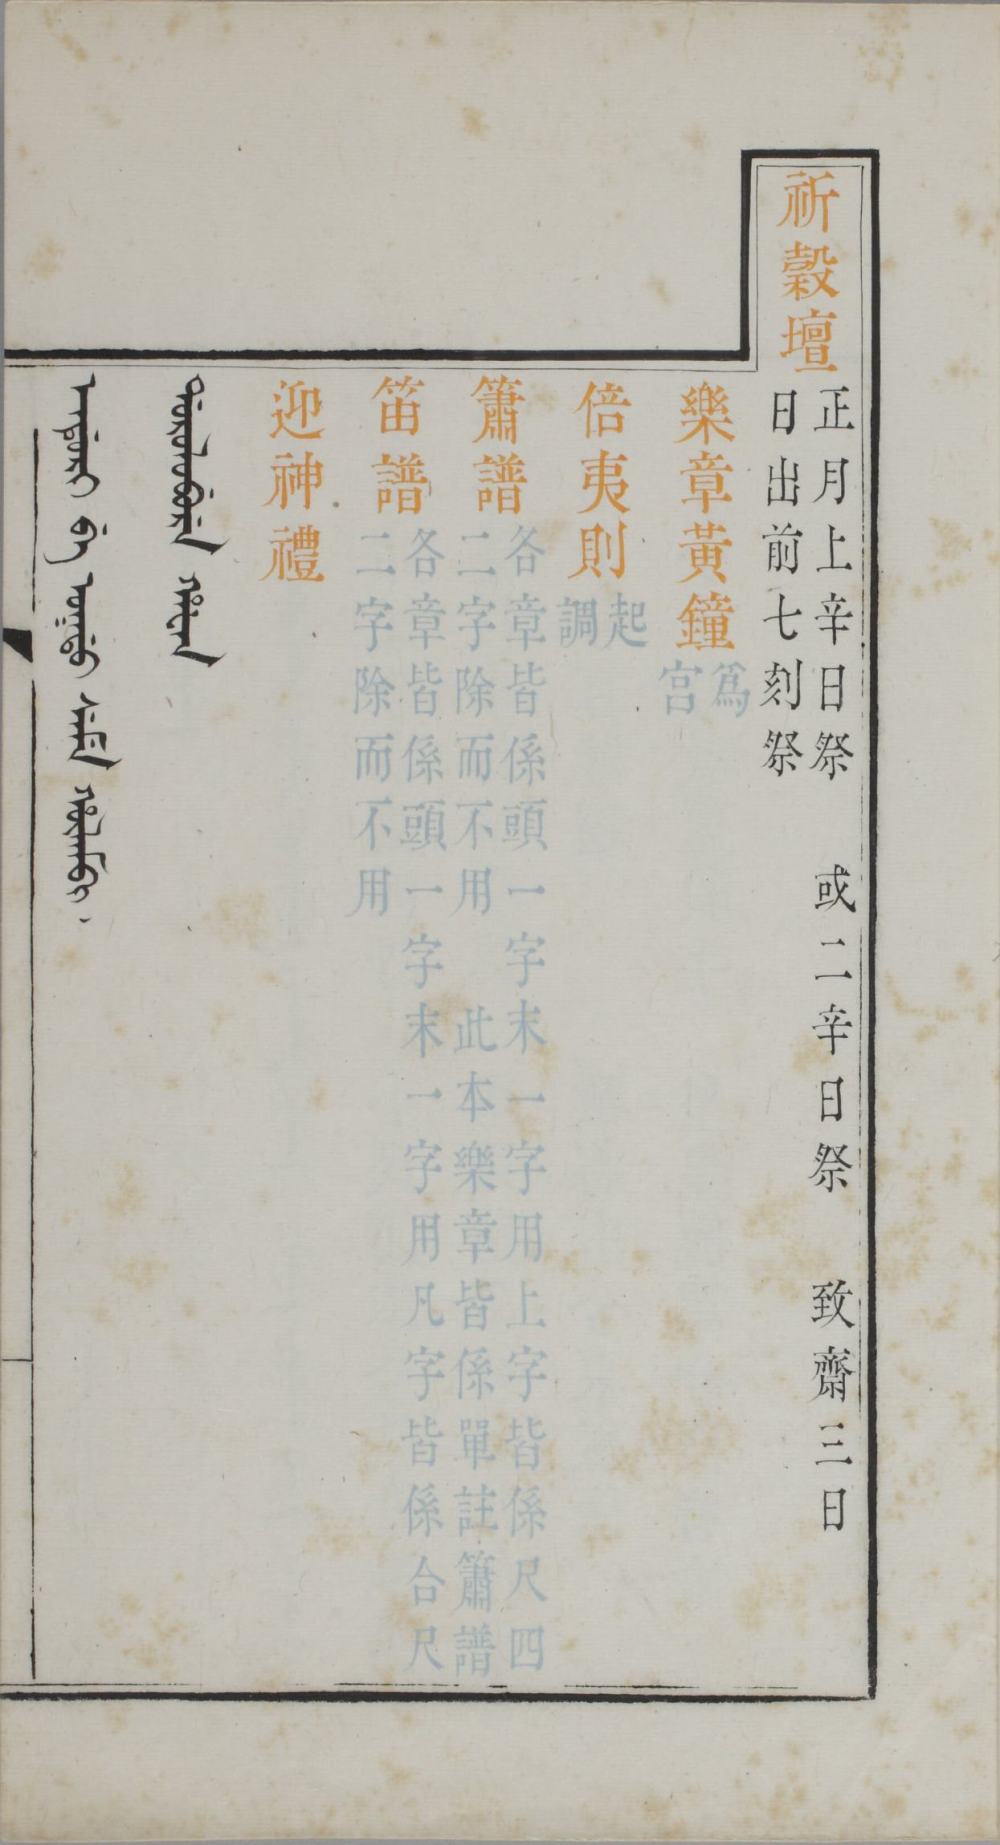 祈穀壇
正月上辛日祭 或二辛日祭 致齋三日
日出前七刻祭
樂章黃鐘
爲
宮
倍夷則
起
調
簫譜
各章皆係頭一字末一字用上字皆係尺四
二字除而不用 此本樂章皆係單註簫譜
笛譜
各章皆係頭一字末一字用凡字皆係合尺
二字除而不用
迎神禮